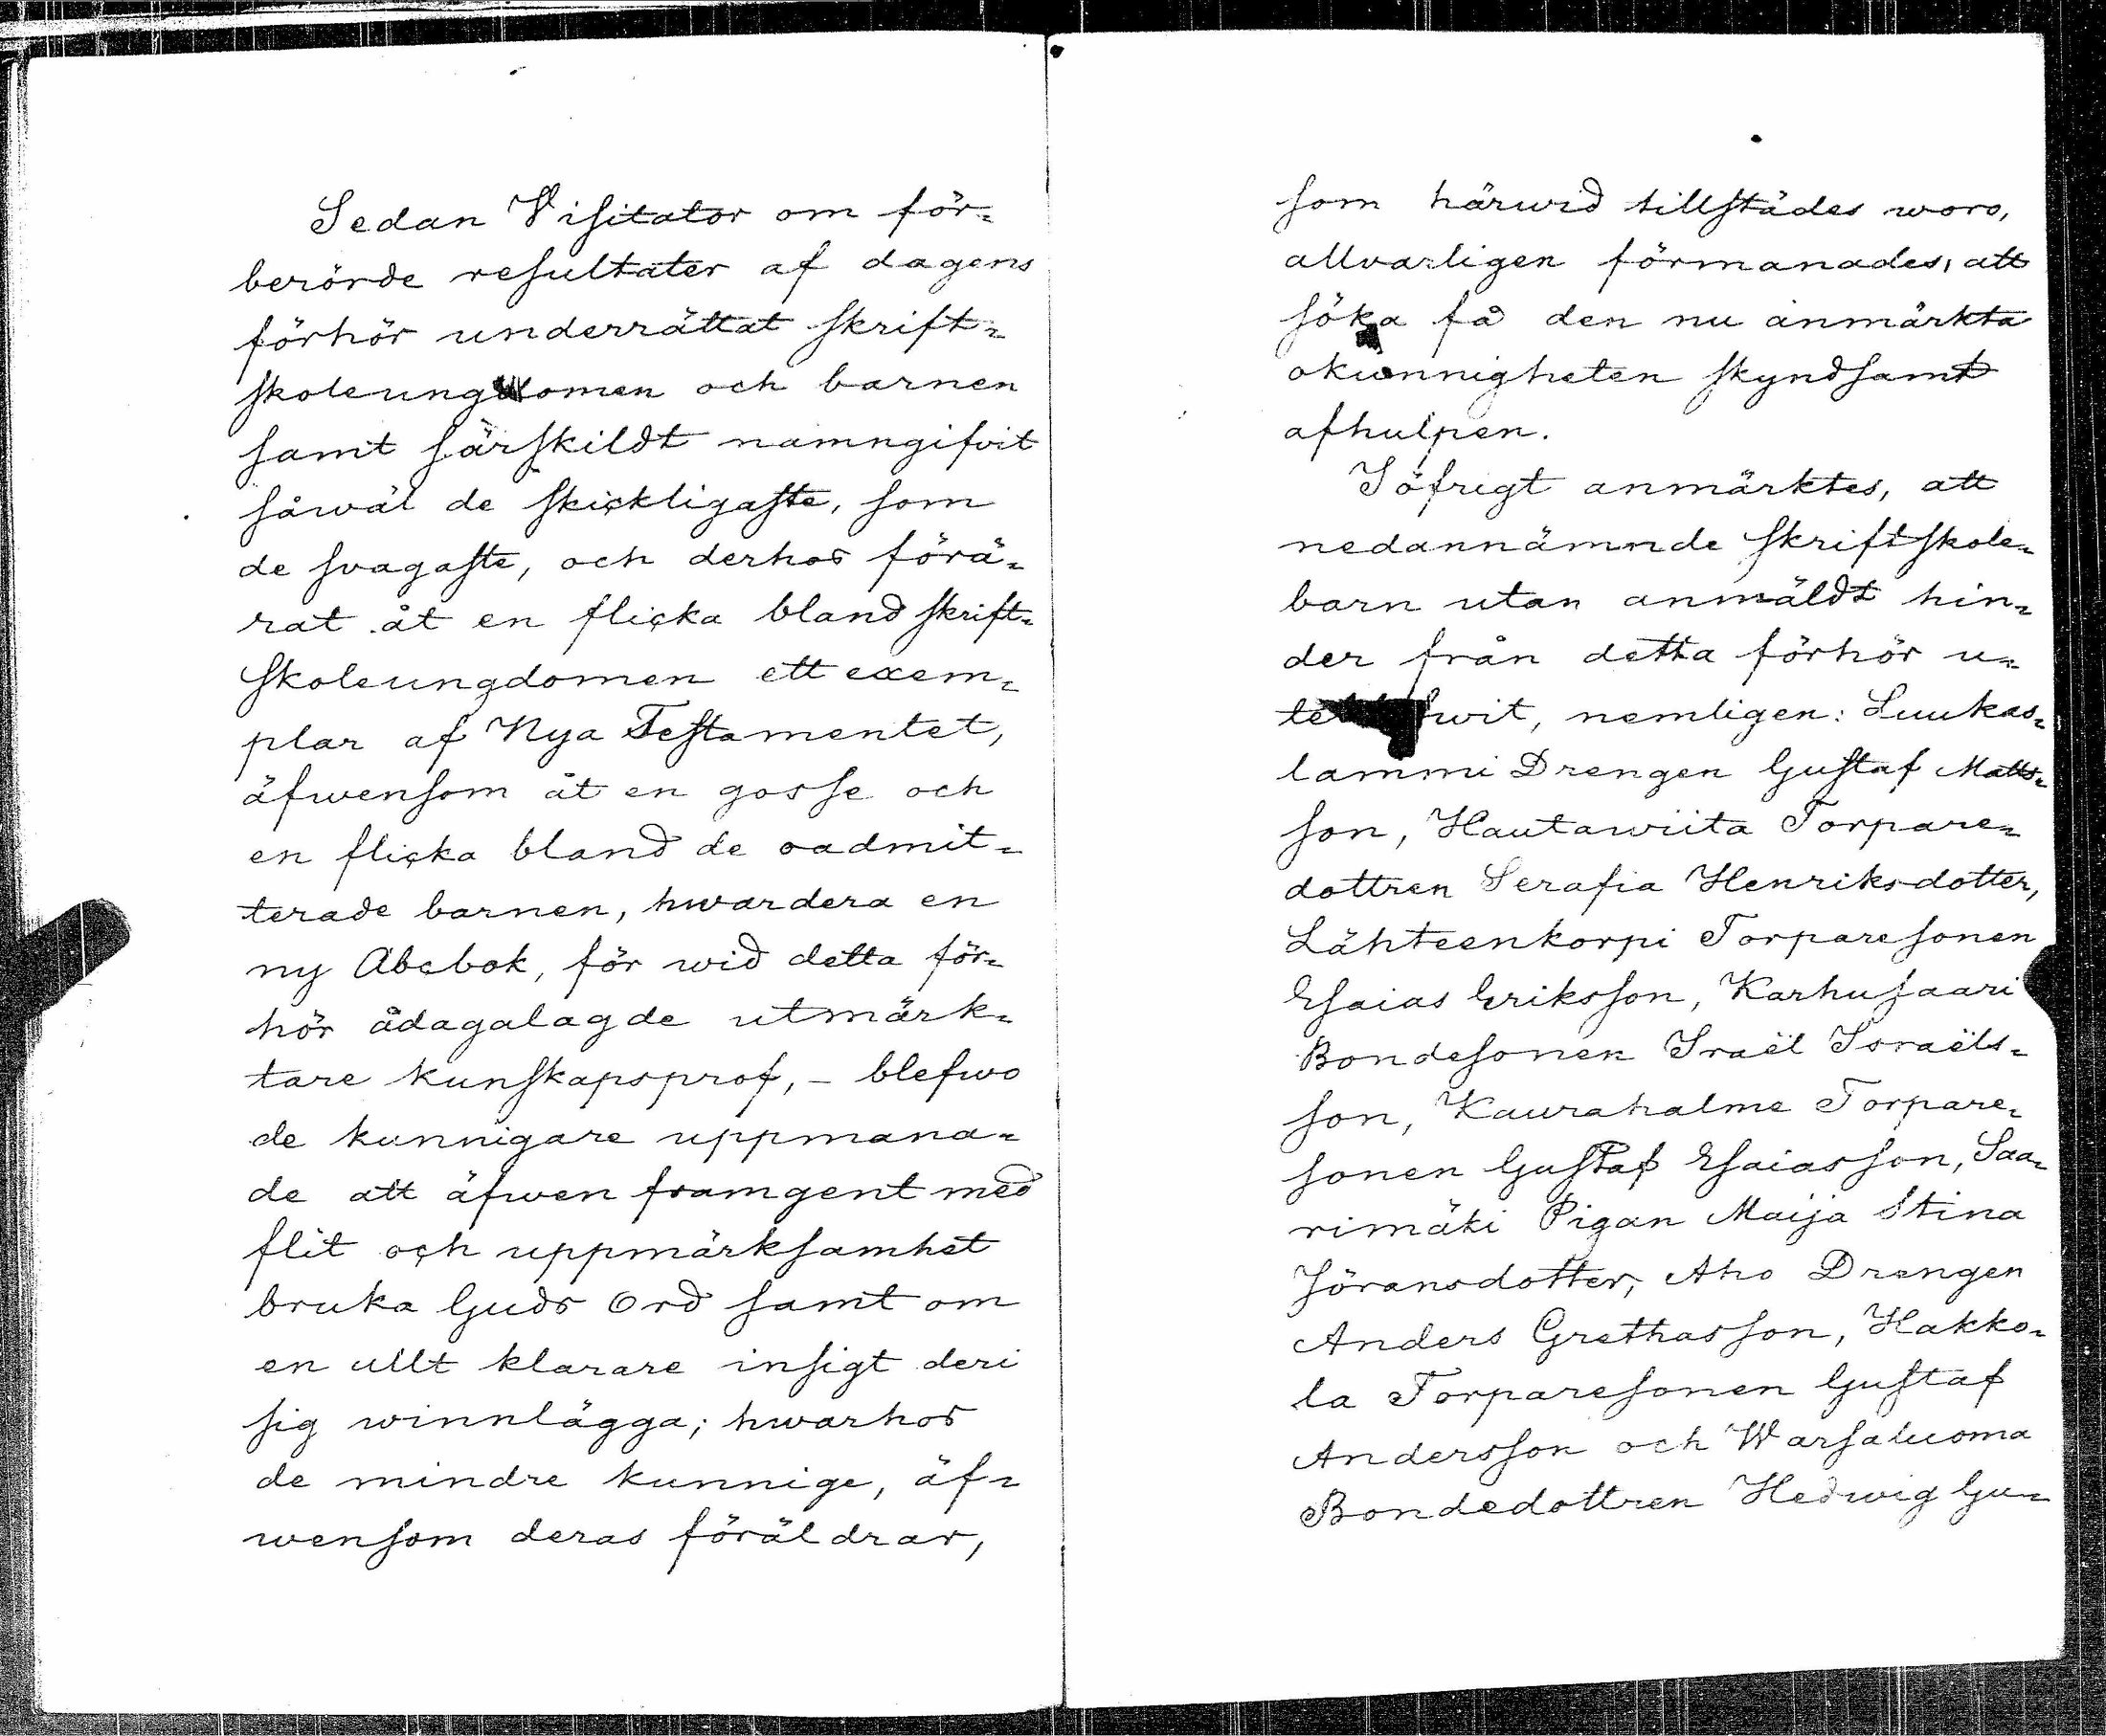 Sedan Visitator om för-
berörde resultater af dagens
förhör underrättat skrift-
skoleungdomen och barnen
samt särskildt namngifvit
såwäl de skickligaste, som
de svagaste, och derhos förä-
rat åt en flicka bland skrift-
skoleungdomen ett exem-
plar af Nya Testamentet,
äfwensom åt en gosse och
en flicka bland de oadmit-
terade barnen, hwardera en
ny Abcbok, för wid detta för-
hör ådagalagde utmärk-
tare kunskapsprof, – blefwo
de kunnigare uppmana-
de att äfwen framgent med
flit och uppmärksamhet
bruka Guds Ord samt om
en allt klarare insigt deri
sig winnlägga; hwarhos
de mindre kunnige, äf-
wensom deras föräldrar,
som härwid tillstädes woro,
allvarligen förmanades, att
söka få den nu anmärkta
okunnigheten skyndsamt
afhulpen.
Iöfrigt anmärktes, att
nedannämnde skriftskole-
barn utan anmäldt hin-
der från detta förhör u-
nemligen: Luukas-
lammi Drengen Gustaf Matts-
son, Hautawiita Torpare-
dottren Serafia Henriksdotter,
Lähteenkorpi Torparesonen
Esaias Eriksson, Karhusaari
Bondesonen Israël Israëls-
son, Kaurahalme Torpare-
sonen Gustaf Esaiasson, Saa-
rimäki Pigan Maija Stina
Jöransdotter, Aho Drengen
Anders Grethasson, Hakko-
la Torparesonen Gustaf
Andersson och Warsaluoma
Bondedottren Hedwig Gu-